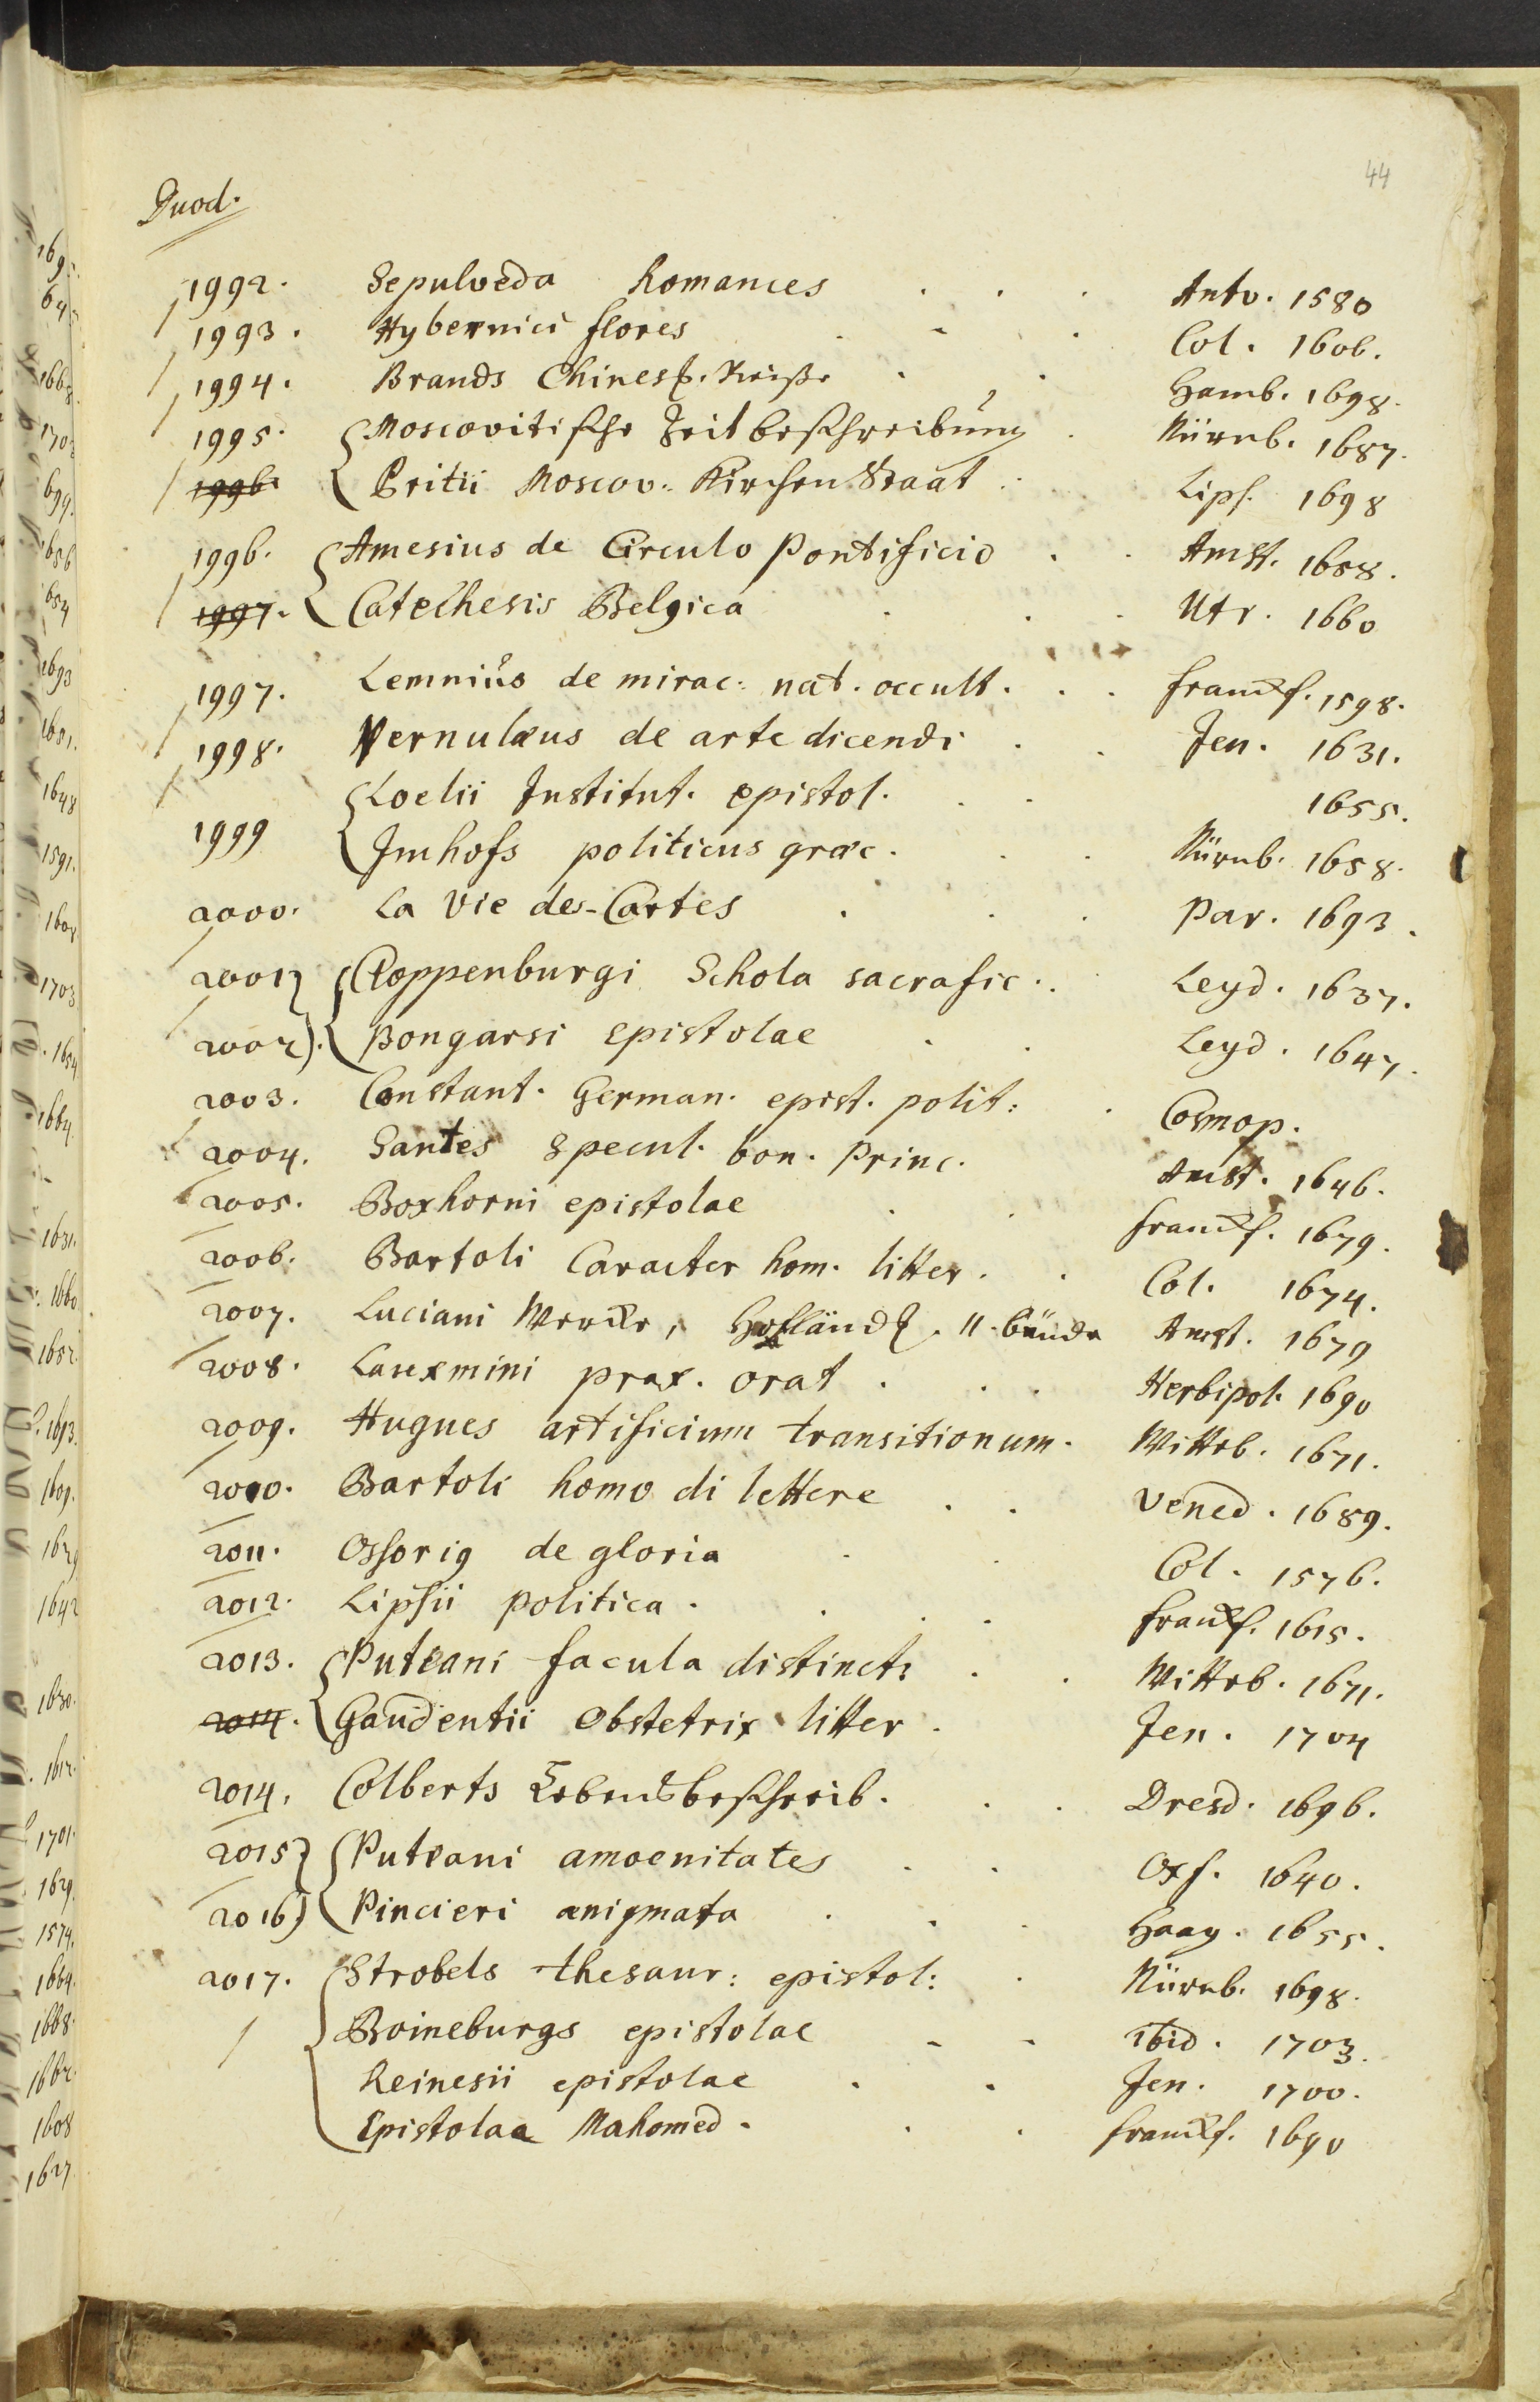 44
Duod.
1992. Sepulveda Romances . . . Antv. 1580
1993. Hybernici flores . - . Col. 1606.
1994. Brands Chines. Reise . . Hamb. 1698.
1995. Moscovitische Zeitbeschreibung . Nürnb. 1687.
1996. Pritii Moscov. Kirchen Staat . Lips. 1698
1996. Amesius de Circulo Pontificio . . Amst. 1658.
1997. Catechesis Belgica . . . Utr. 1660
1997. Lemnius de mirac: nat. occult. . . franckf. 1598.
1998. Vernulæus de arte dicendi . . Jen. 1631.
Loelii Institut. epistol. . . 1655.
1999 Imhofs politicus græc. . . Nürnb. 1658.
2000. La Vie des-Cartes . . . Par. 1693.
2001 Cloppenburgi Schola sacrafic. . Leyd. 1637.
2002). Bongarsi Epistolae . . Leyd. 1647.
2003. Constant. German. epist. polit: . Cosmop.
2004. Santes Specul. bon. Princ. Amst. 1646.
2005. Boxhorni epistolae . . franckf. 1679.
2006. Bartoli Caracter hom. litter. . Col. 1674.
2007. Luciani Wercke, Holländ. 11 bände Amst. 1679
2008. Lauxmini prax. orat . . . Herbipol. 1690
2009. Hugues artificium transitionum. Witteb. 1671.
2010. Bartoli homo di lettere . . Vened. 1689.
2011. Ossorig de gloria . . Col. 1576.
2012. Lipsii politica. . . . franckf. 1615.
2013. Puteani facula distinct: . . Witteb. 1671.
2014. Gaudentii Obstetrix litter. Jen. 1704
2014. Colberts Lebensbeschreib. . . Dresd. 1696.
2015 Puteani amoenitates . . Oxf. 1640.
2016) Pincieri ænigmata . . . Haag. 1655.
2017. Strobels thesaur: epistol: . Nürnb. 1698.
Boineburgs epistolae - - ibid. 1703.
Reinesii epistolae . . Jen. 1700.
Epistolae Mahomed. . . franckf. 1690